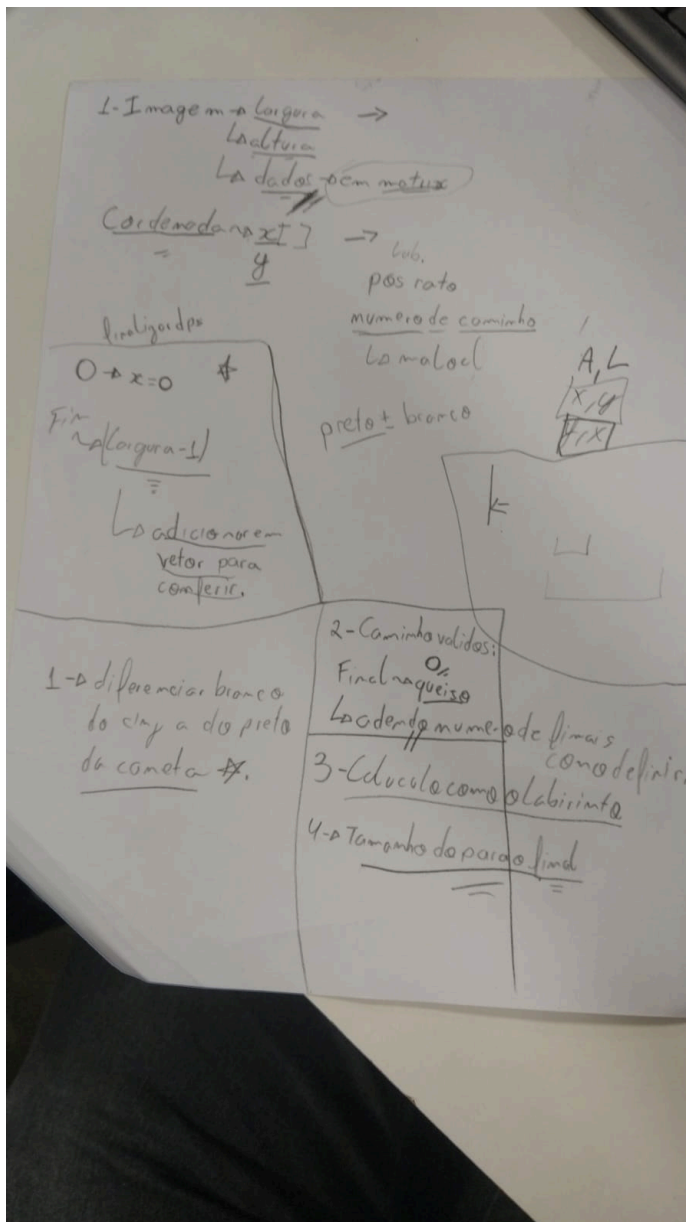 1-Imagem → largura →
↳ altura
↳ dados → em matrix
Cordenada → x[ ] →
y
Lab.
pos rato
numero de caminho
↳ maloc
preto ± branco
A, L
x, y
y, x
0 → x=0
Fim
→ (largura-1)
↳ adicionar em
vetor para
conferir.
1 → diferenciar branco
do cinza do preto
da caneta
2-Caminho validos:
Final no queijo
numero de finais
como definir
3-Calculo como o labirinto
4-> Tamanho do para o final